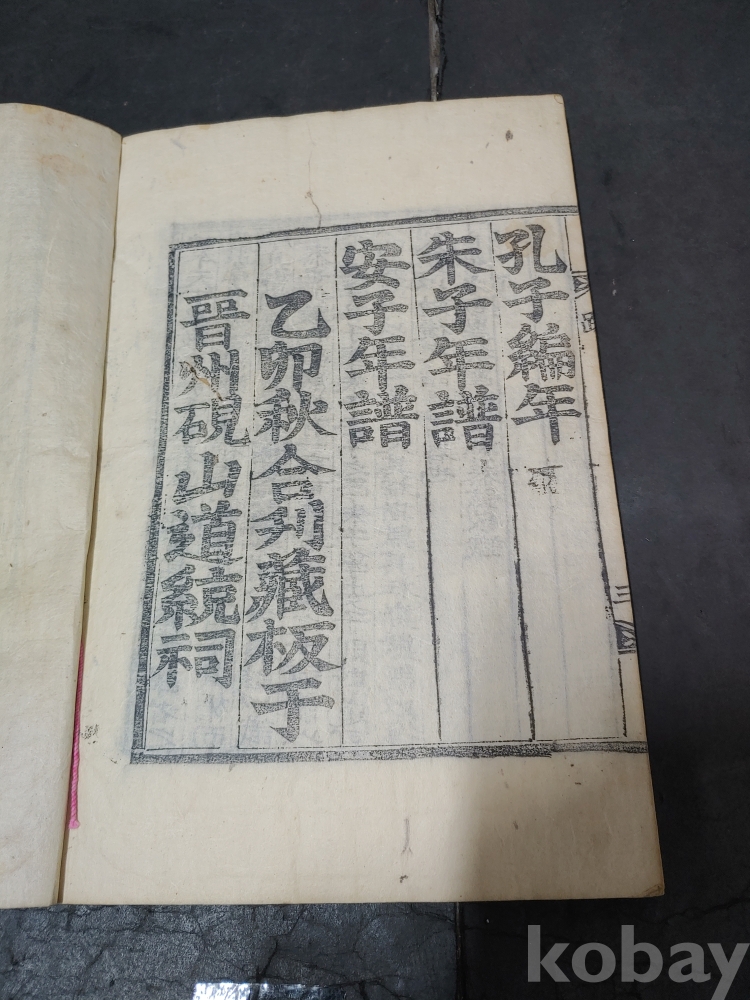 孔子編年
朱子年譜
安子年譜
乙卯秋合刊藏板于
晉州硯山道統祠
三
kobay